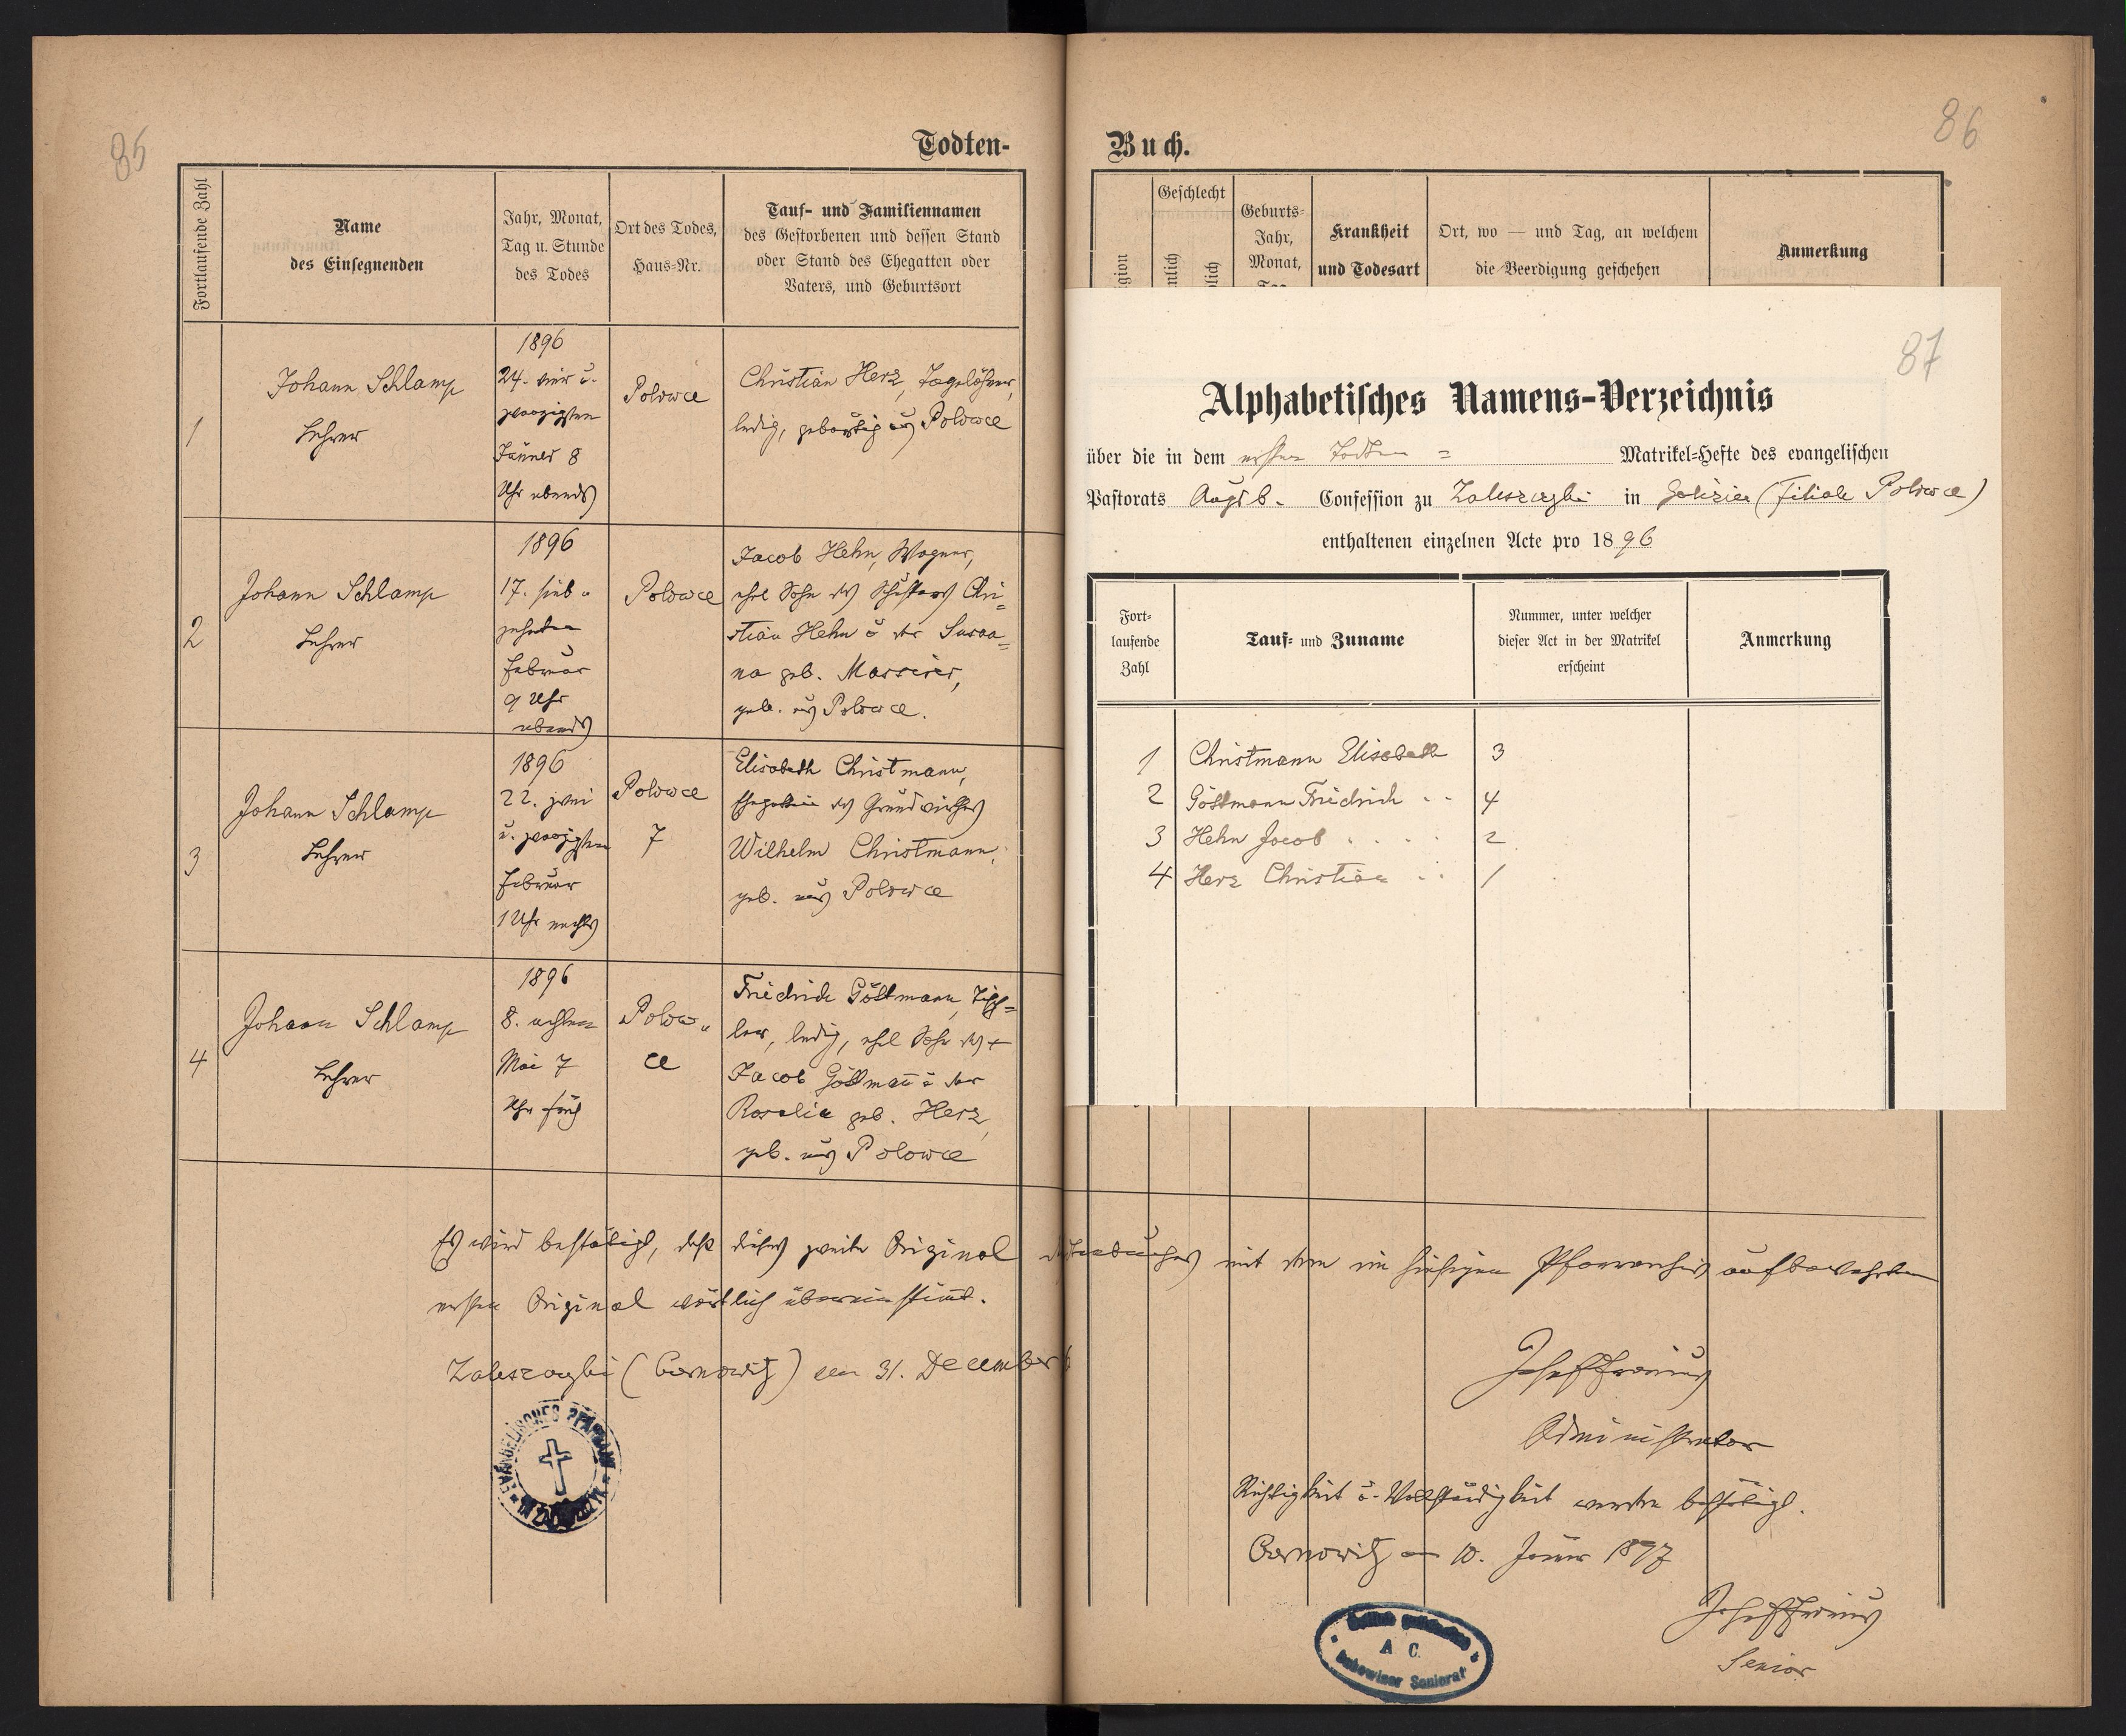 85
Todten-
Fortlaufende Zahl
Name
des Einsegnenden
Jahr, Monat,
Tag u. Stunde
des Todes
Ort des Todes,
Haus-Nr.
Tauf- und Familiennamen
des Gestorbenen und dessen Stand
oder Stand des Ehegatten oder
Vaters, und Geburtsort
1
Johann Schlamp
Lehrer
1896
24. vier u.
zwanzigsten
Jänner 8
Uhr abends
Polowce
Christian Herz, Tagelöhner,
ledig, gebürtig aus Polowce
2
Johann Schlamp
Lehrer
1896
17. sieb-
zehnten
Februar
9 Uhr
abends
Polowce
Jacob Hehn, Wagner,
ehel Sohn des Schusters Chri=
stian Hehn u der Susan=
na geb. Massirer,
geb. aus Polowce.
3
Johann Schlamp
Lehrer
1896
22. zwei
u. zwanzigsten
Februar
1 Uhr nachts
Polowce
7
Elisabeth Christmann,
Ehegattin des Grundwirthes
Wilhelm Christmann,
geb. aus Polowce
4
Johann Schlamp
Lehrer
1896
8. achten
Mai 7
Uhr früh
Polow-
ce
Friedrich Göttmann, Tisch=
ler, ledig, ehel Sohn des +
Jacob Göttmañ u der
Rosalia geb. Herz,
geb. aus Polowce
Es wird bestätigt, daß dieses zweite Original mit dem im hiesigen Pfarrarchiv aufbewahrten
ersten Original wörtlich übereinstimt.
Zaleszczyki (Czernowitz) den 31. December
EVANGELISCHES PFARRAMT
86
Buch.
Geschlecht
Geburts-
Jahr,
Monat,
Krankheit
und Todesart
Ort, wo — und Tag, an welchem
die Beerdigung geschehen
Anmerkung
87
Alphabetisches Namens-Verzeichnis
über die in dem ersten Todten = Matrikel-Hefte des evangelischen
Pastorats Augsb. Confession zu Zaleszczyki in Galizien (Filiale Polowce)
enthaltenen einzelnen Acte pro 1896
Fort-
laufende
Zahl
Tauf- und Zuname
Nummer, unter welcher
dieser Act in der Matrikel
erscheint
Anmerkung
1 Christmann Elisabeth 3
2 Göttmann Friedrich 4
3 Hehn Jacob 2
4 Herz Christian 1
Administrator
Richtigkeit u. Vollständigkeit werden bestätigt.
Czernowitz am 10. Jäner 1897
Senior
A. C.
Bukowiner Seniorat